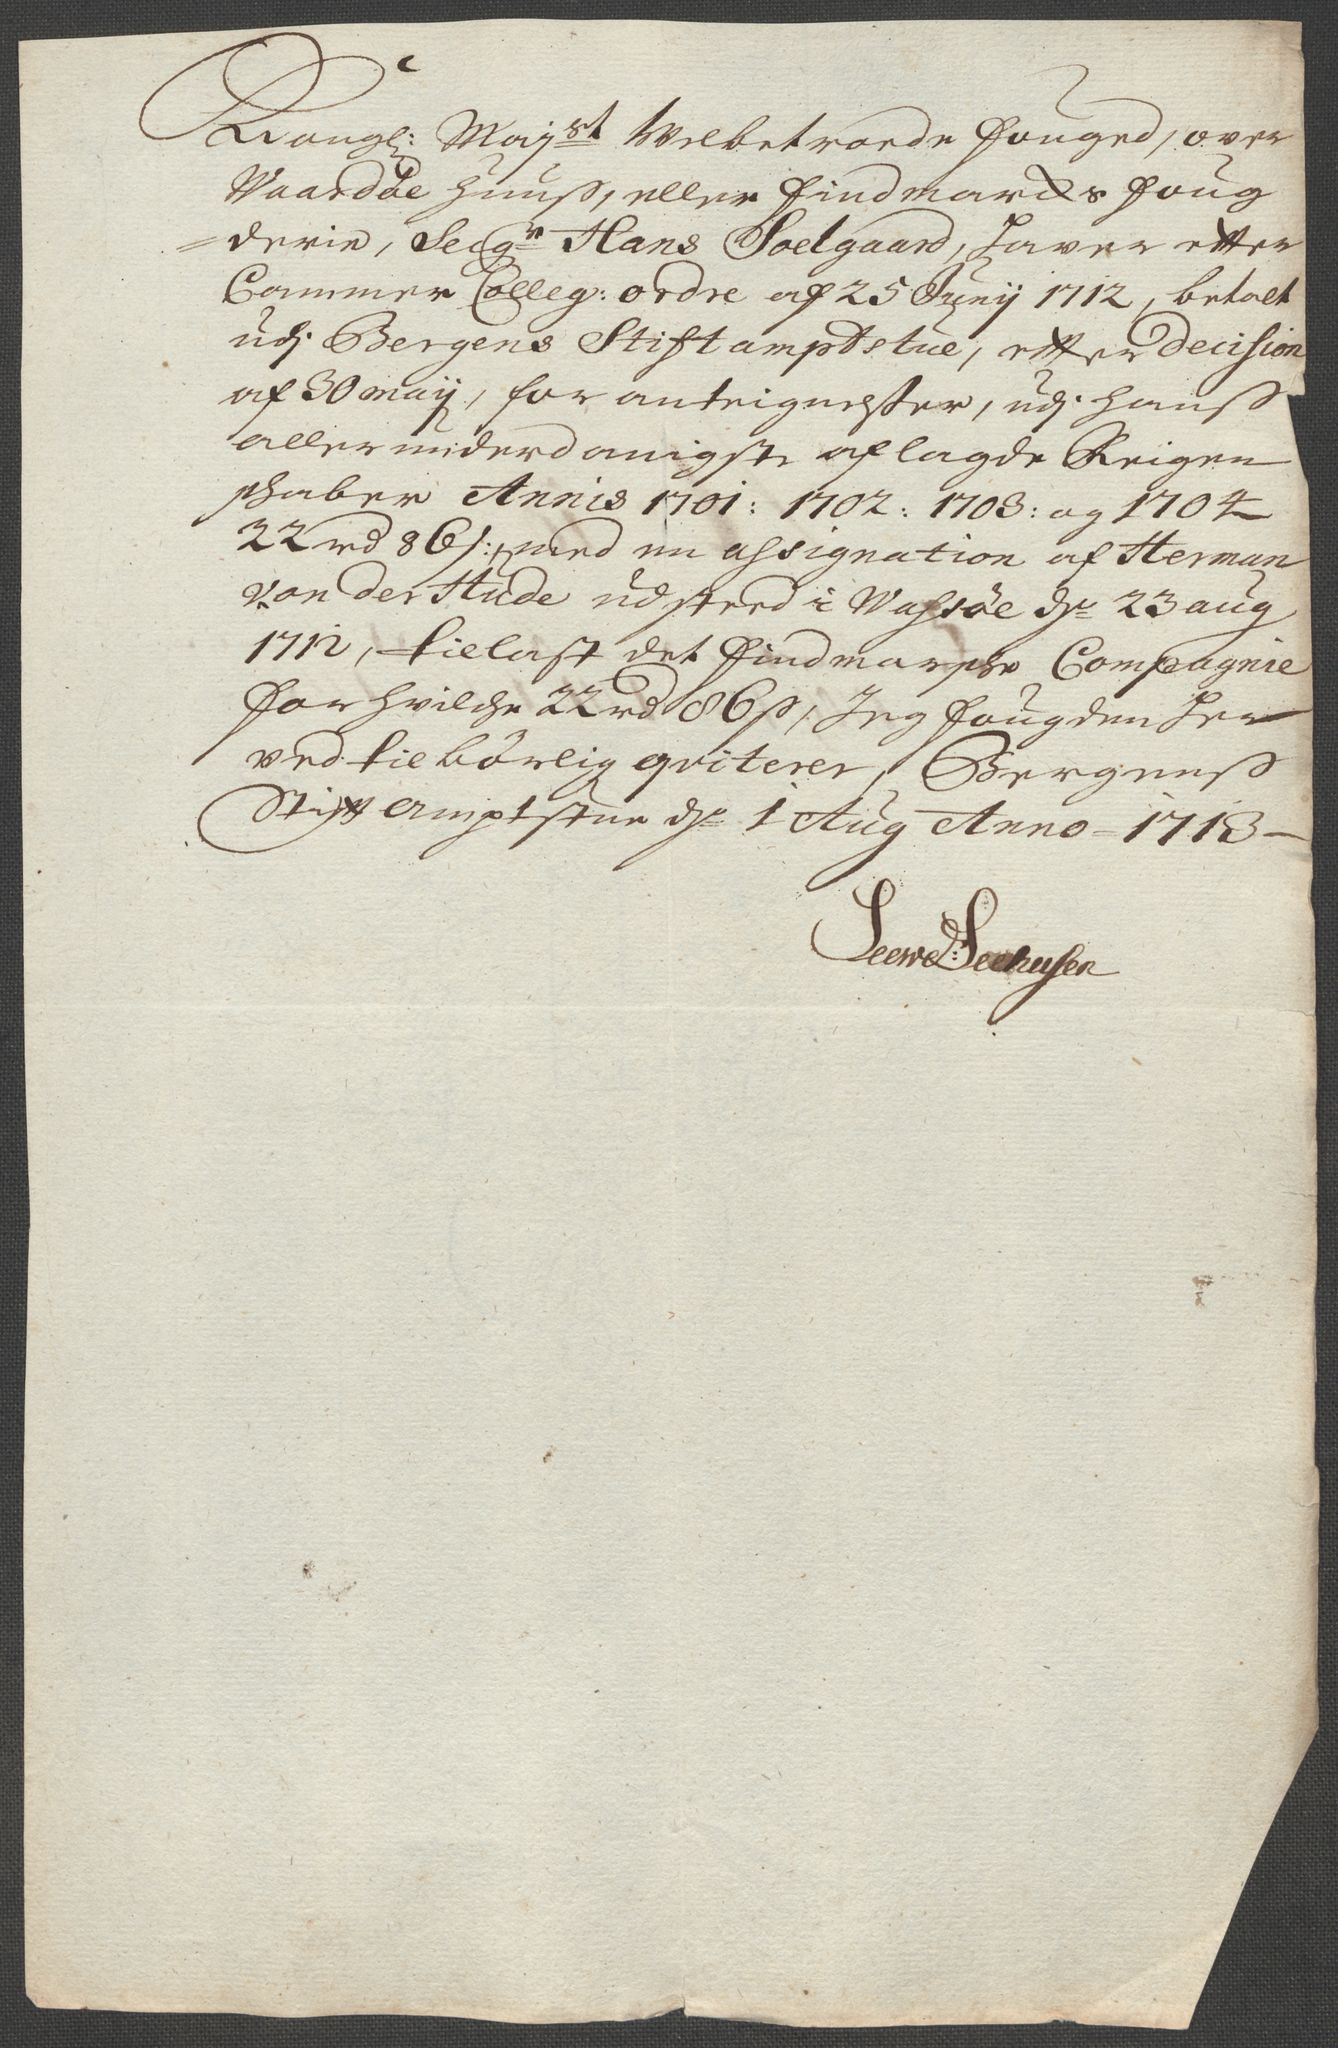 Kongl: Mayst Velbetroede fouged, over
Vaardöe Huuss, eller findmarchs foug
=derie, Seigr Hans Soelgaard, haver etter
Cammer Colleg: ordre af 25 Junij 1712, betalt
udj Bergens Stiftamptstue, etter decision
af 30 maij, for anteignelser, udj hanss
allerunderdanigste aflagde Reigen
schaber Annis 1701: 1702: 1703: og 1704
22 rd 86 s: med en assignation af Herman
von der Hude udsted i Vassöe de 23 aug
1712, tilelast det findmarsche Compagnie
for hvilche 22 rd 86 s, Jeg fougden her
ved tilbörlig qviterer, Bergenss
Stift amptstue de 1 Aug Anno 1713
Leewe: Seehusen